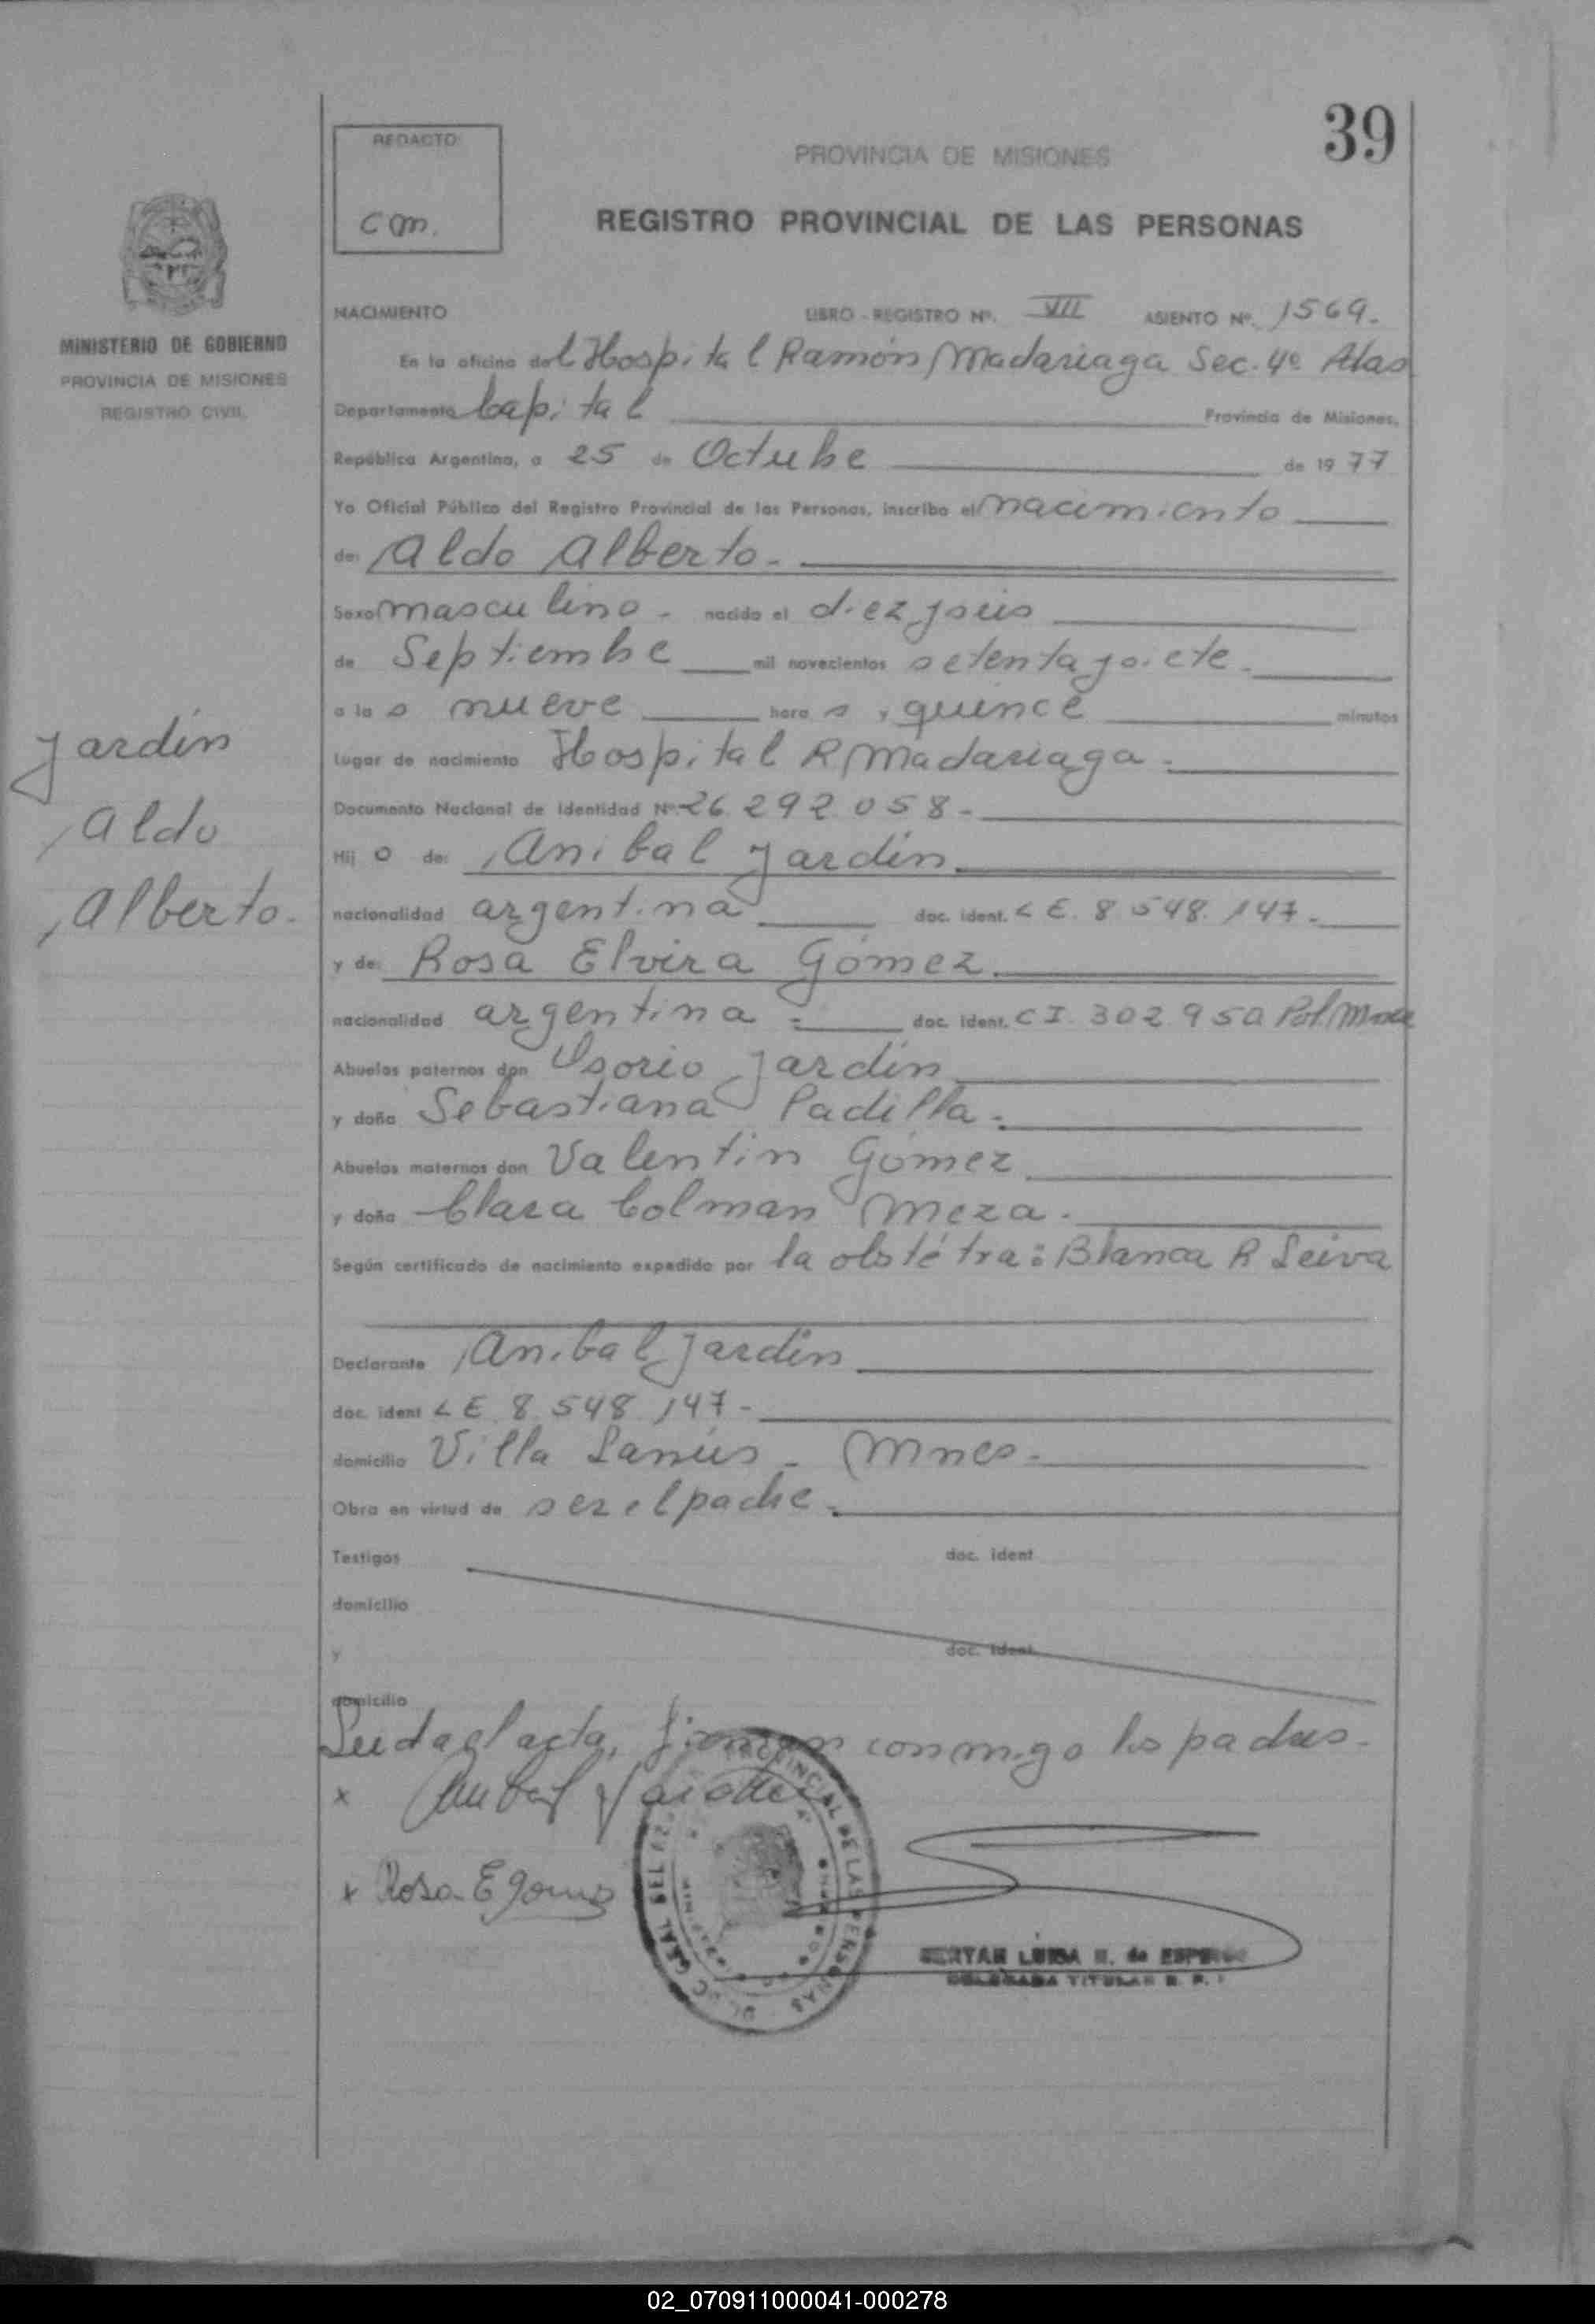 39
REDACTO:
cm.
PROVINCIA DE MISIONES
REGISTRO PROVINCIAL DE LAS PERSONAS
MINISTERIO DE GOBIERNO
PROVINCIA DE MISIONES
REGISTRO CIVIL
NACIMIENTO LIBRO - REGISTRO Nº. VII ASIENTO Nº. 1569.
En la oficina del Hospital Ramón Madariaga Sec. 4º
Departamento Capital Provincia de Misiones,
República Argentina, a 25 de Octubre de 1977
Yo Oficial Público del Registro Provincial de las Personas, inscribo el nacimiento
de: Aldo Alberto.-
Sexo masculino - nacido el diez y seis
de Septiembre mil novecientos setenta y siete.
a las nueve horas y quince minutos
lugar de nacimiento Hospital R Madariaga.-
Documento Nacional de Identidad Nº. 26.292.058-
Hijo de: Anibal Jardín
nacionalidad argentina doc. ident. L E. 8.548.147.-
y de: Rosa Elvira Gómez
nacionalidad argentina - doc. ident. C I. 302.950 Pol. Mnes
Abuelos paternos don Osorio Jardín
y doña Sebastiana Padilla.-
Abuelos maternos don Valentín Gómez
y doña Clara Colman Meza.
Según certificado de nacimiento expedido por la obstétra: Blanca R Leiva
Declarante Anibal Jardín
doc. ident L E. 8.548.147-
domicilio Villa Lanús - Mnes.
Obra en virtud de ser el padre.
Testigos doc. ident
domicilio
y doc. ident.
domicilio
Leida el acta, firman conmigo los padres.
x Anibal Jardin
x Rosa E Gomez
PROVINCIAL DE LAS PERSONAS
Jardín
Aldo
Alberto.
02_070911000041-000278